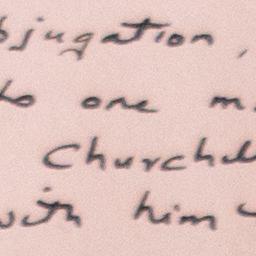 bjugation,
to one m
Churchil
with him